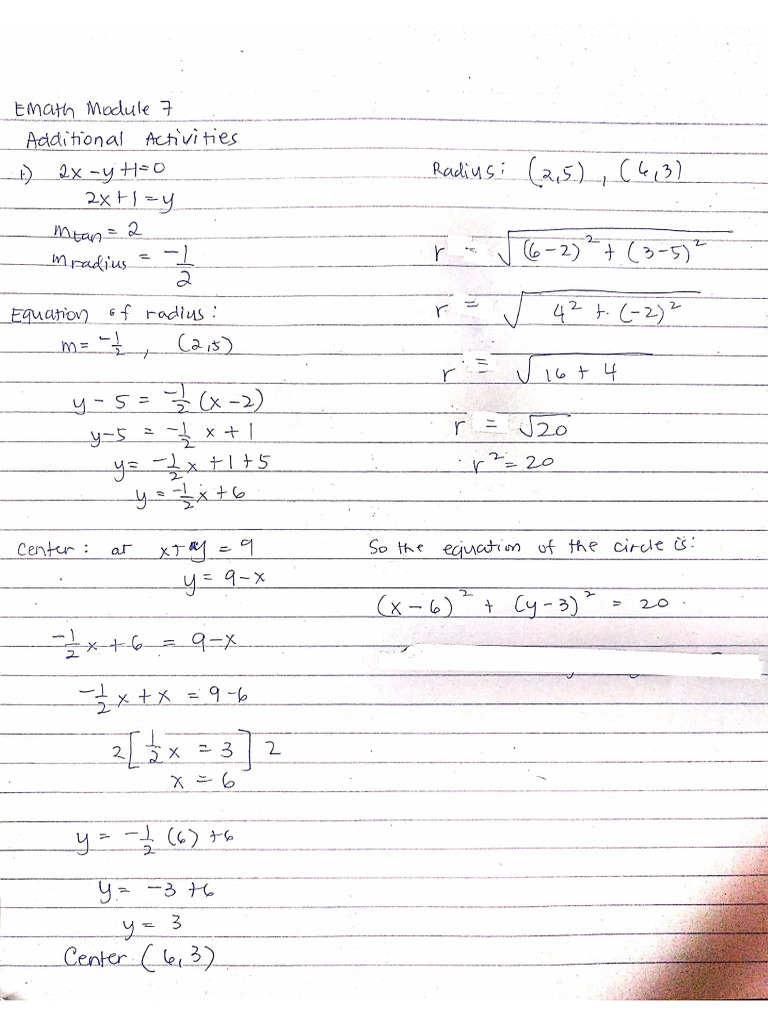 EMath Module 7
Additional Activities
1) 2x - y + 1 = 0
2x + 1 = y
m tan = 2
m radius = -1/2
Equation of radius:
m = -1/2 , (2,5)
y - 5 = -1/2 (x - 2)
y - 5 = -1/2 x + 1
y = -1/2 x + 1 + 5
y = -1/2 x + 6
Center: at x + y = 9
y = 9 - x
-1/2 x + 6 = 9 - x
-1/2 x + x = 9 - 6
2 [ 1/2 x = 3 ] 2
x = 6
y = -1/2 (6) + 6
y = -3 + 6
y = 3
Center (6,3)
Radius: (2,5) , (6,3)
r = √((6-2)² + (3-5)²)
r = √(4² + (-2)²)
r = √(16 + 4)
r = √20
r² = 20
So the equation of the circle is:
(x - 6)² + (y - 3)² = 20